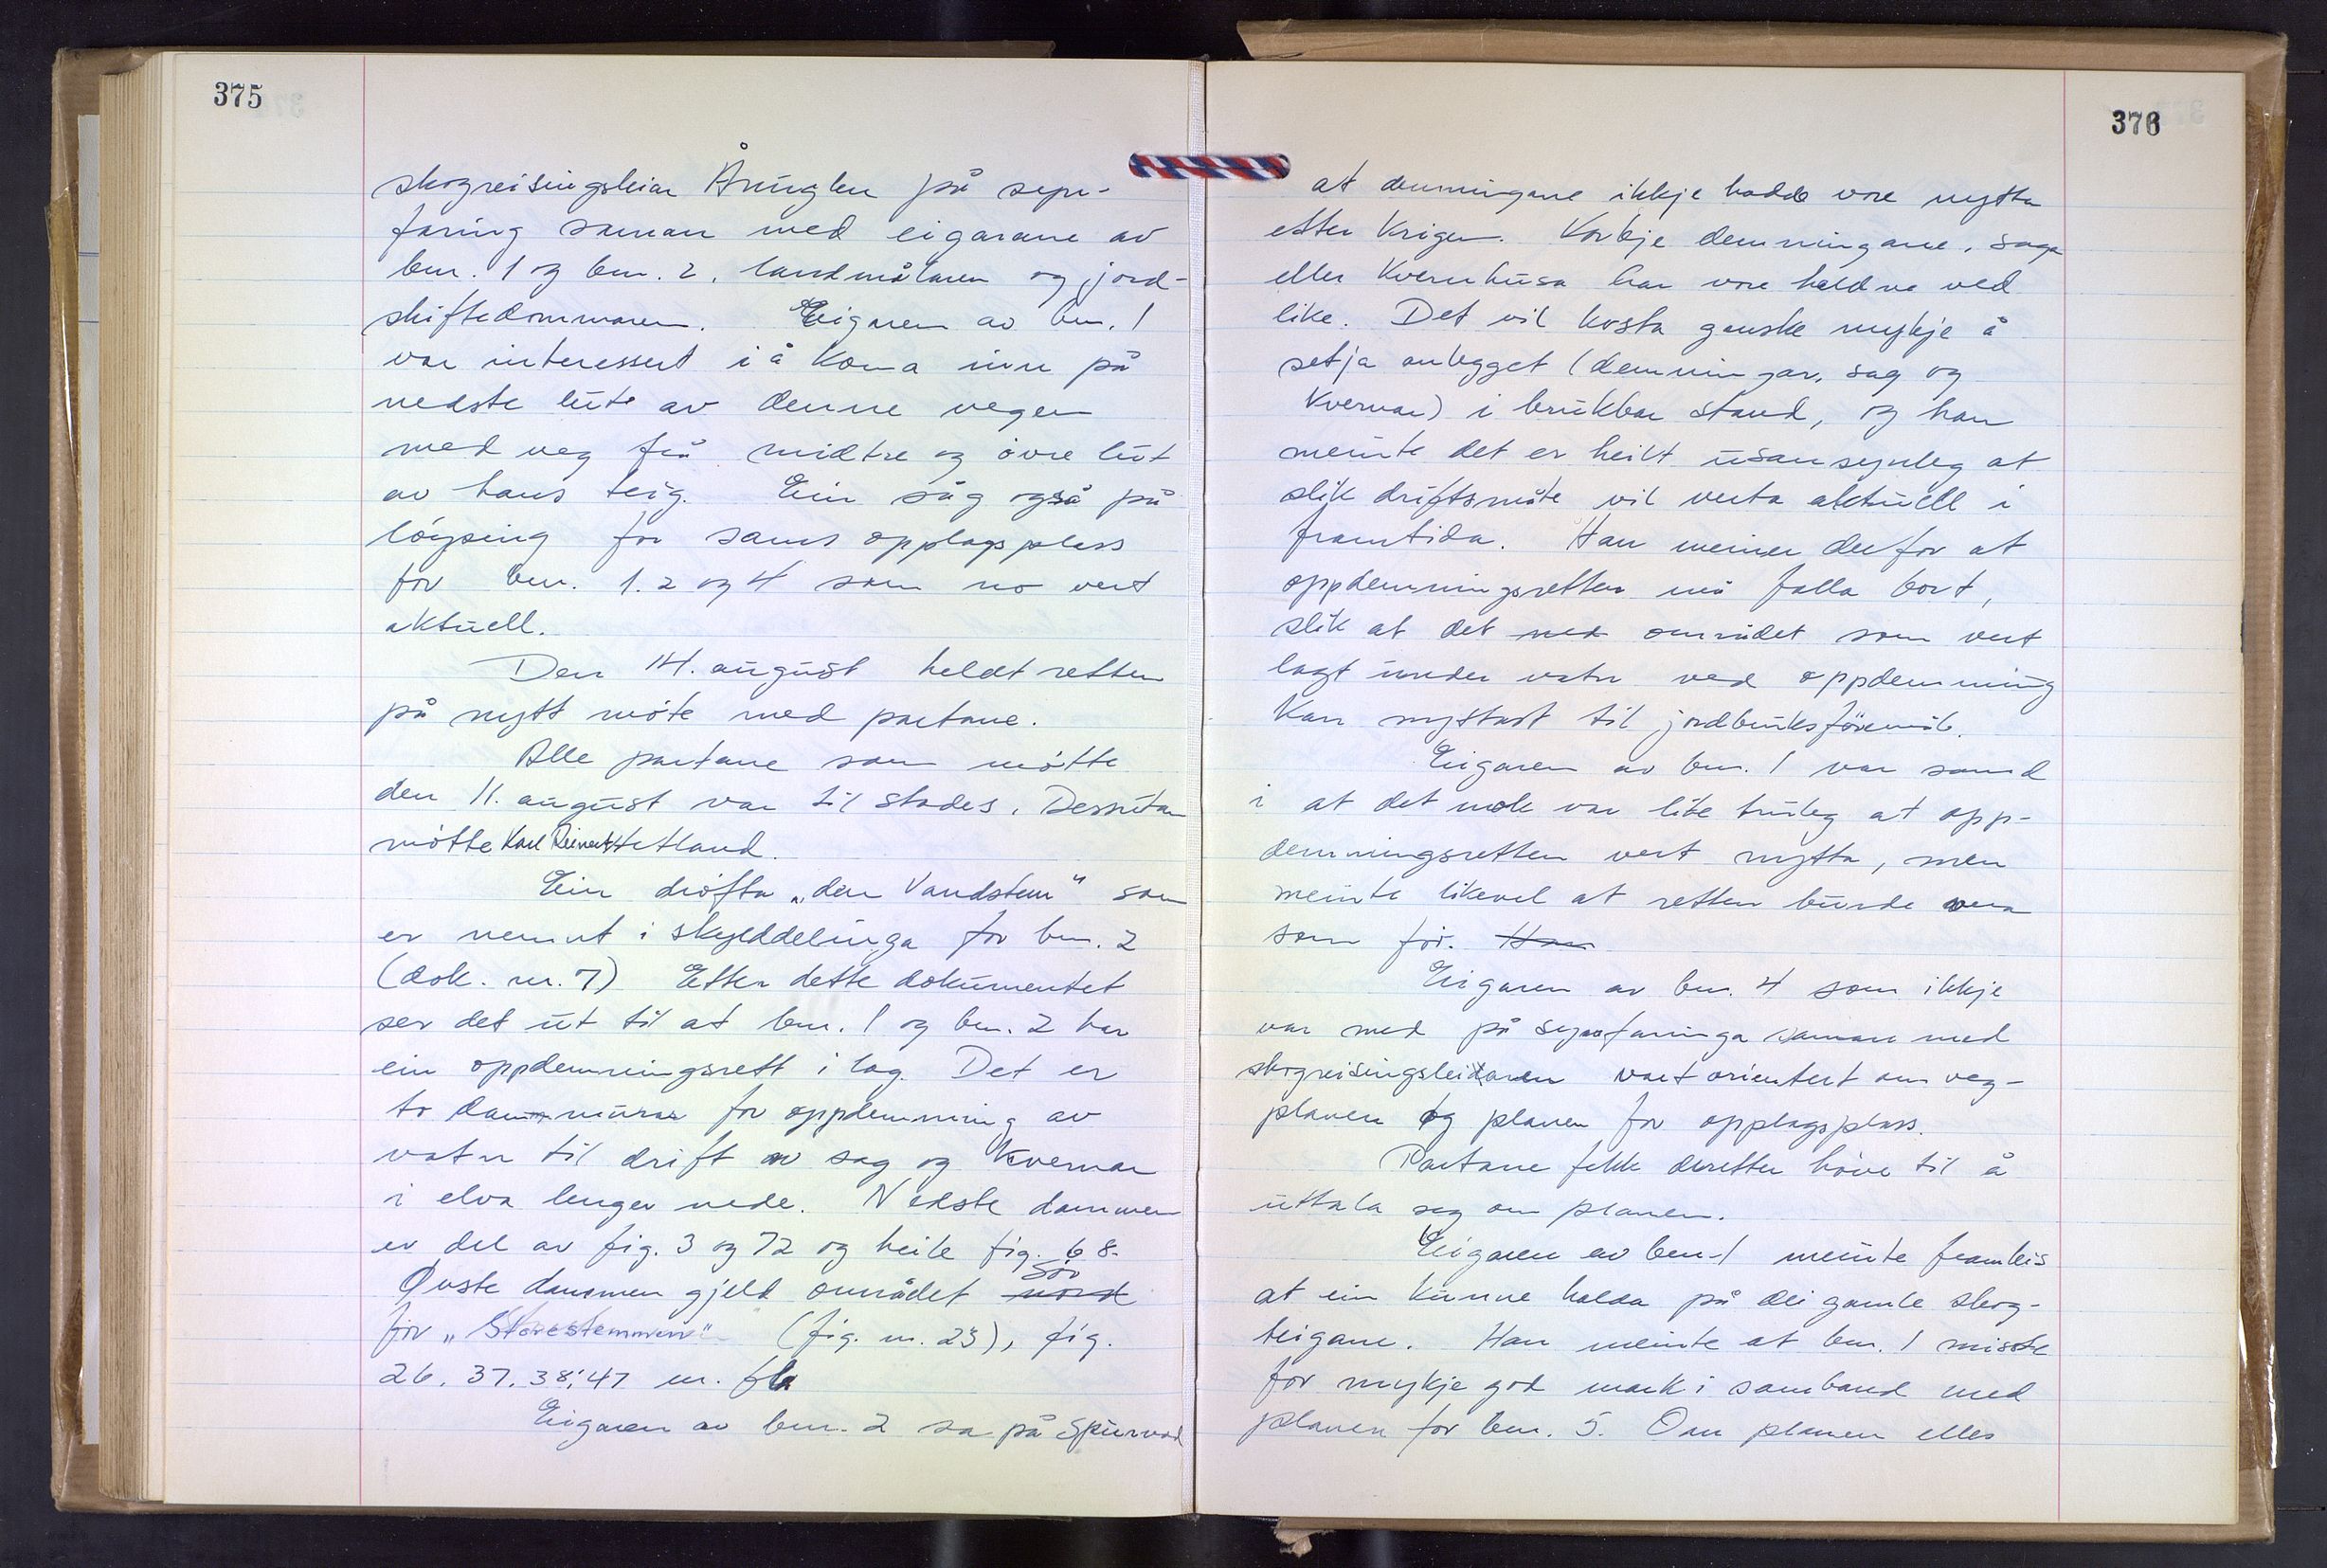 375
skogreisingsleiar Årniglen på syn-
faring saman med eigarane av
bnr. 1 og bnr. 2, landmålaren og jord-
skiftedommaren. Eigaren av bnr. 1
var interessert i å koma inn på
nedste lute av denne vegen
med veg frå midtre og övre lut
av hans teig. Ein såg også på
löyping for sams opplagsplass
for bnr. 1. 2 og 4 som no vert
aktuell.
Den 14. august heldt retten
på nytt möte med partane.
Alle partane som mötte
den 11. august var til stades. Dessutan
mötte Karl Reinert Hetland.
Ein dröfta „den Vandstem" som
er nemnt i skylddelinga for bnr. 2
(dok. nr. 7) Etter dette dokumentet
ser det ut til at bnr. 1 og bnr. 2 har
ein oppdemningsrett i lag. Det er
to dammurar for oppdemning av
vatn til drift av sag og kvernar
i elva lenger nede. Nedste dammen
er del av fig. 3 og 72 og heile fig. 68.
Övste dammen gjeld området nord sör
for „Storestemmen" (fig. nr. 23), fig.
26. 37. 38. 47 m. fla
Eigaren av bnr. 2 sa på spurnad
376
at demningane ikkje hadde vore nytta
etter krigen. Korkje demningane, saga
eller kvernhusa har vore heldne ved
like. Det vil kosta ganske mykje å
setja anlegget (demningar, sag og
kvernar) i brukbar stand, og han
meinte det er heilt usansynleg at
slik driftsmåte vil verta aktuell i
framtida. Han meiner derfor at
oppdemningsretten må falla bort,
slik at det ned området som vert
lagt under vatn ved oppdemning
kan nyttast til jordbruksföremål.
Eigaren av bnr. 1 var samd
i at det nok var lite truleg at opp-
demningsretten vert nytta, men
meinte likevel at retten burde vera
som för. Han
Eigaren av bnr. 4 som ikkje
var med på synfaringa saman med
skogreisingsleiaren vart orientert om veg-
planen og planen for opplagsplass.
Partane fekk deretter höve til å
uttala seg om planen.
Eigaren av bnr. 1 meinte framleis
at ein kunne halda på dei gamle skog-
teigane. Han meinte at bnr. 1 misste
for mykje god mark i samband med
planen for bnr. 5. Om planen elles